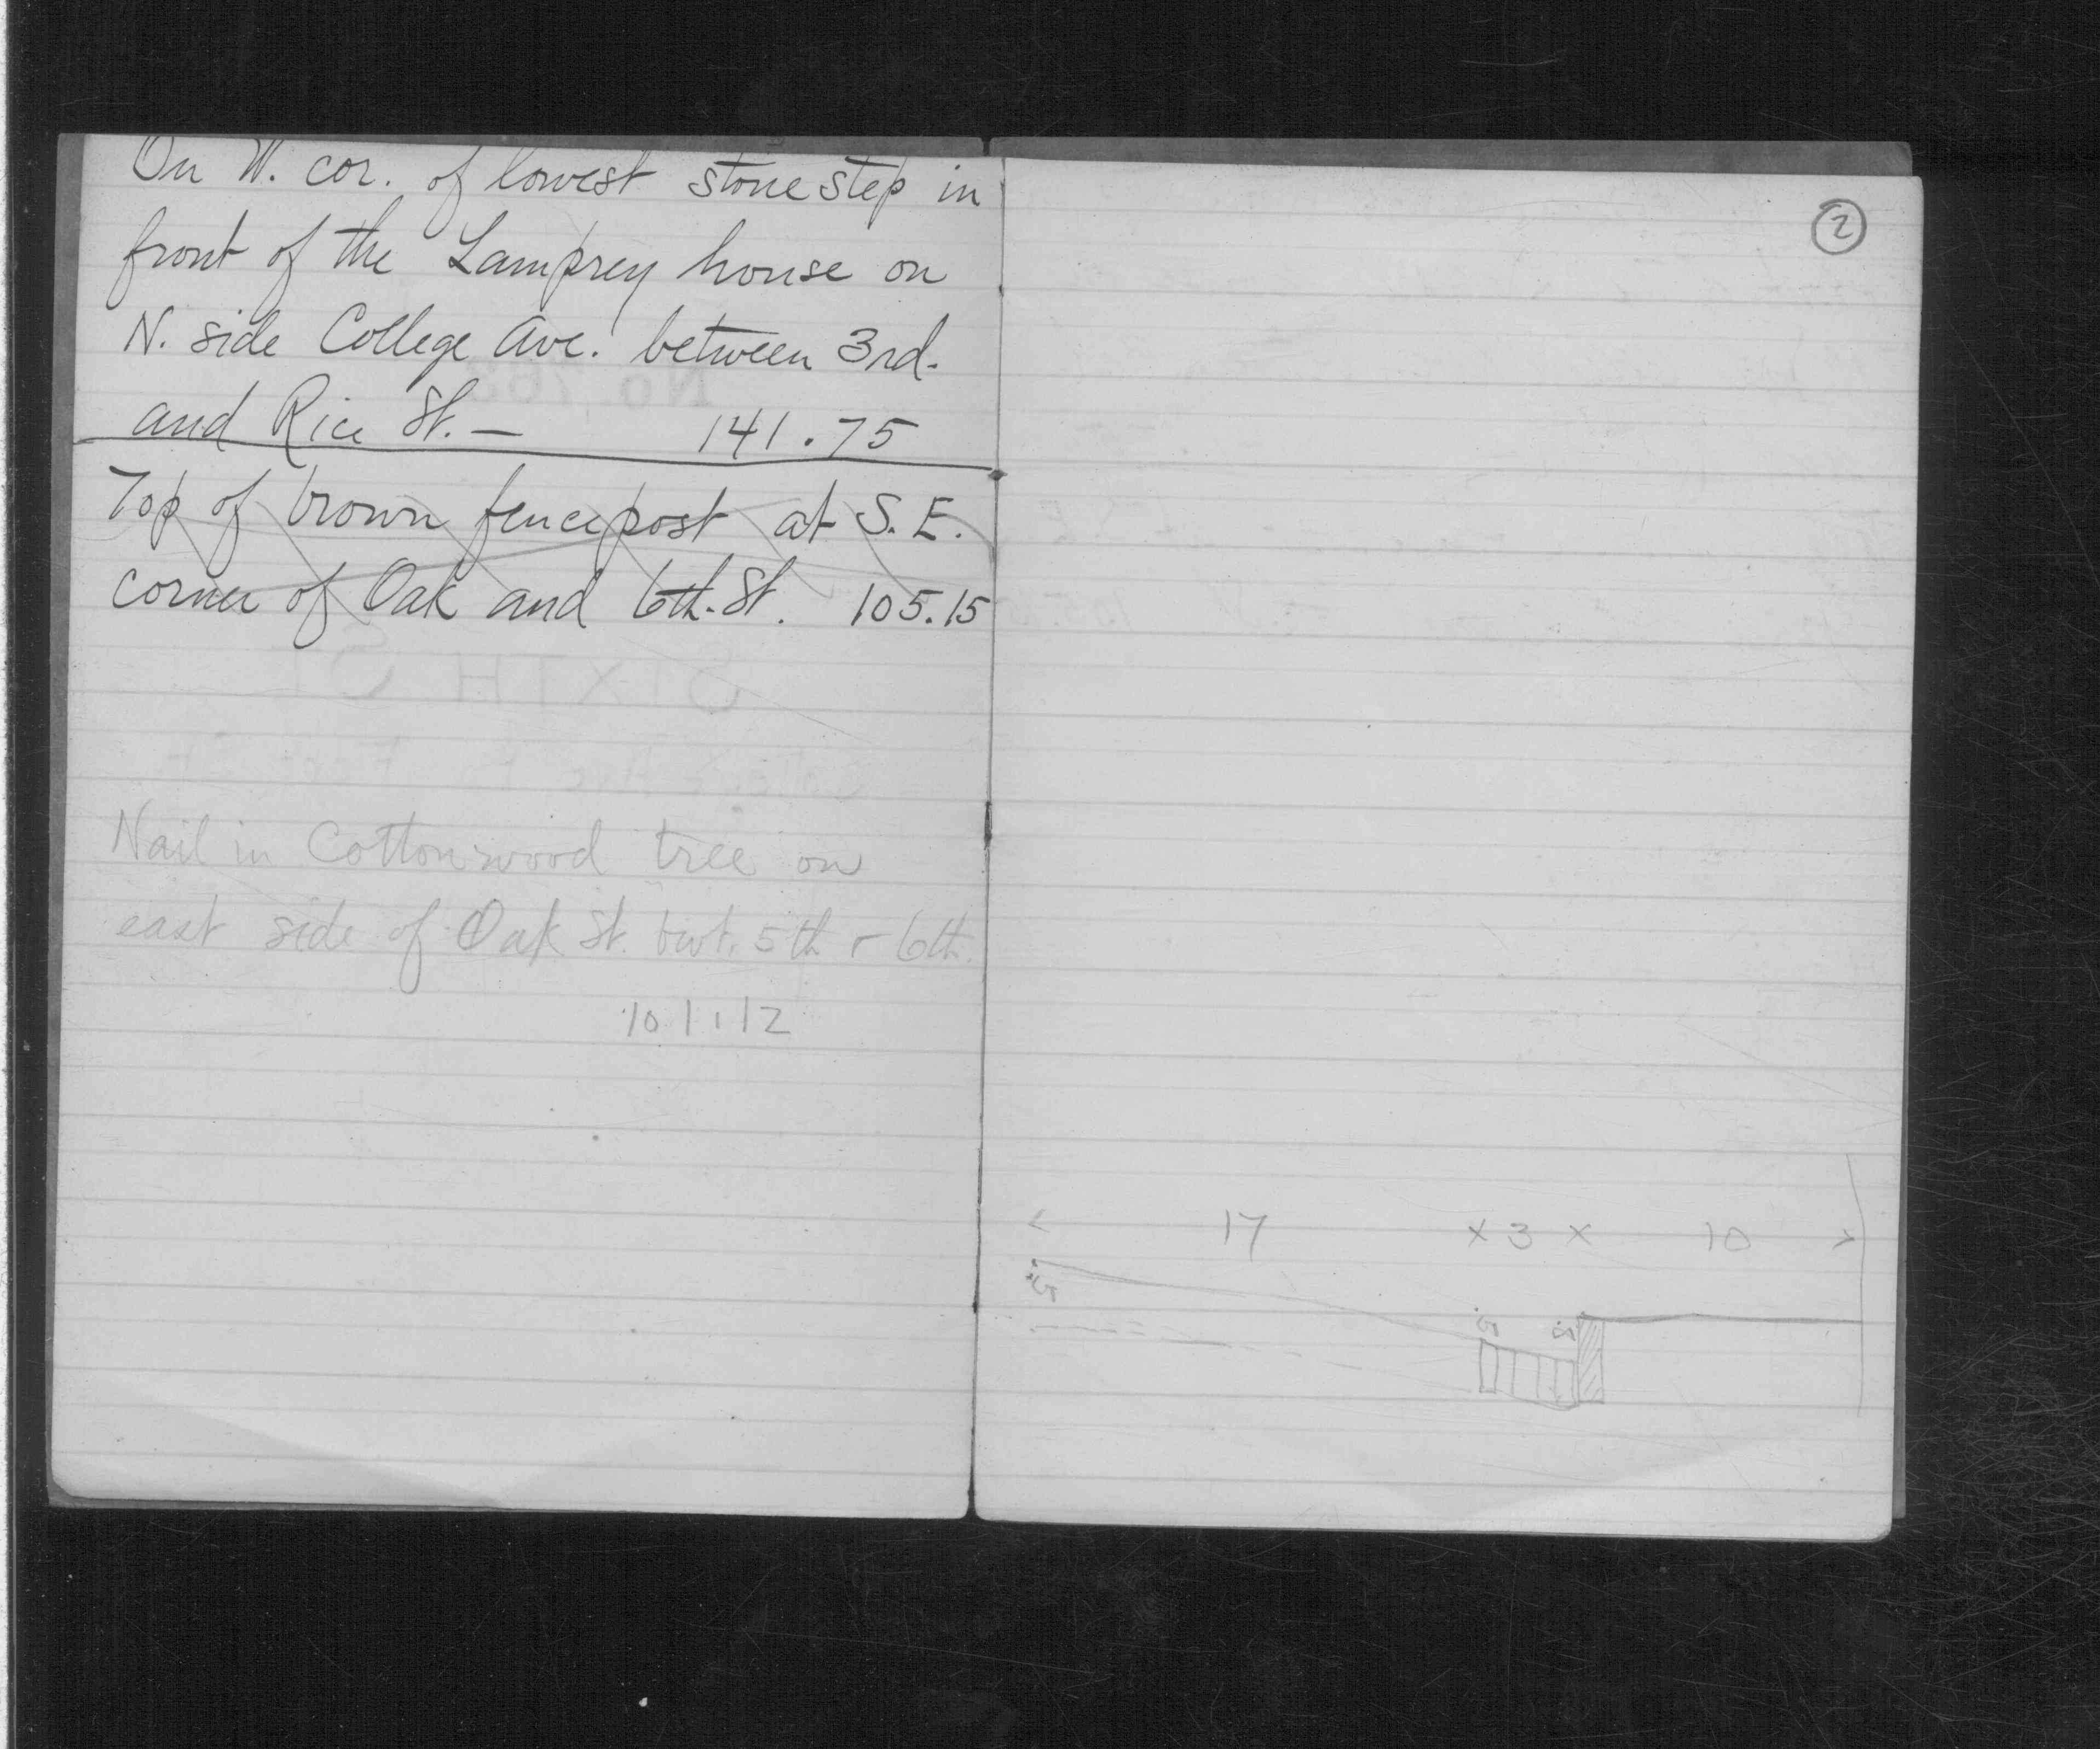 On W. cor. of lowest stone step in
front of the Lamprey house on
N. side College Ave. between 3rd.
and Rice St. — 141.75
Top of brown fence post at S.E.
corner of Oak and 6th. St. 105.15
Nail in Cottonwood tree on
east side of Oak St. bwt. 5th & 6th.
101.12
2
17 x 3 x 10